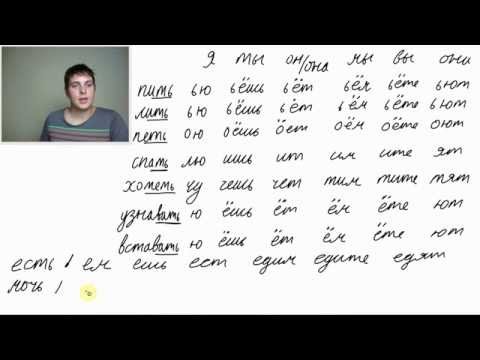 я ты он/она мы вы они
пить ью ьёшь ьёт ьём ьёте ьют
лить ью ьёшь ьёт ьём ьёте ьют
петь ою оёшь оёт оём оёте оют
спать лю ишь ит им ите ят
хотеть чу чешь чет тим тите тят
узнавать ю ёшь ёт ём ёте ют
вставать ю ёшь ёт ём ёте ют
есть / ем ешь ест едим едите едят
мочь /